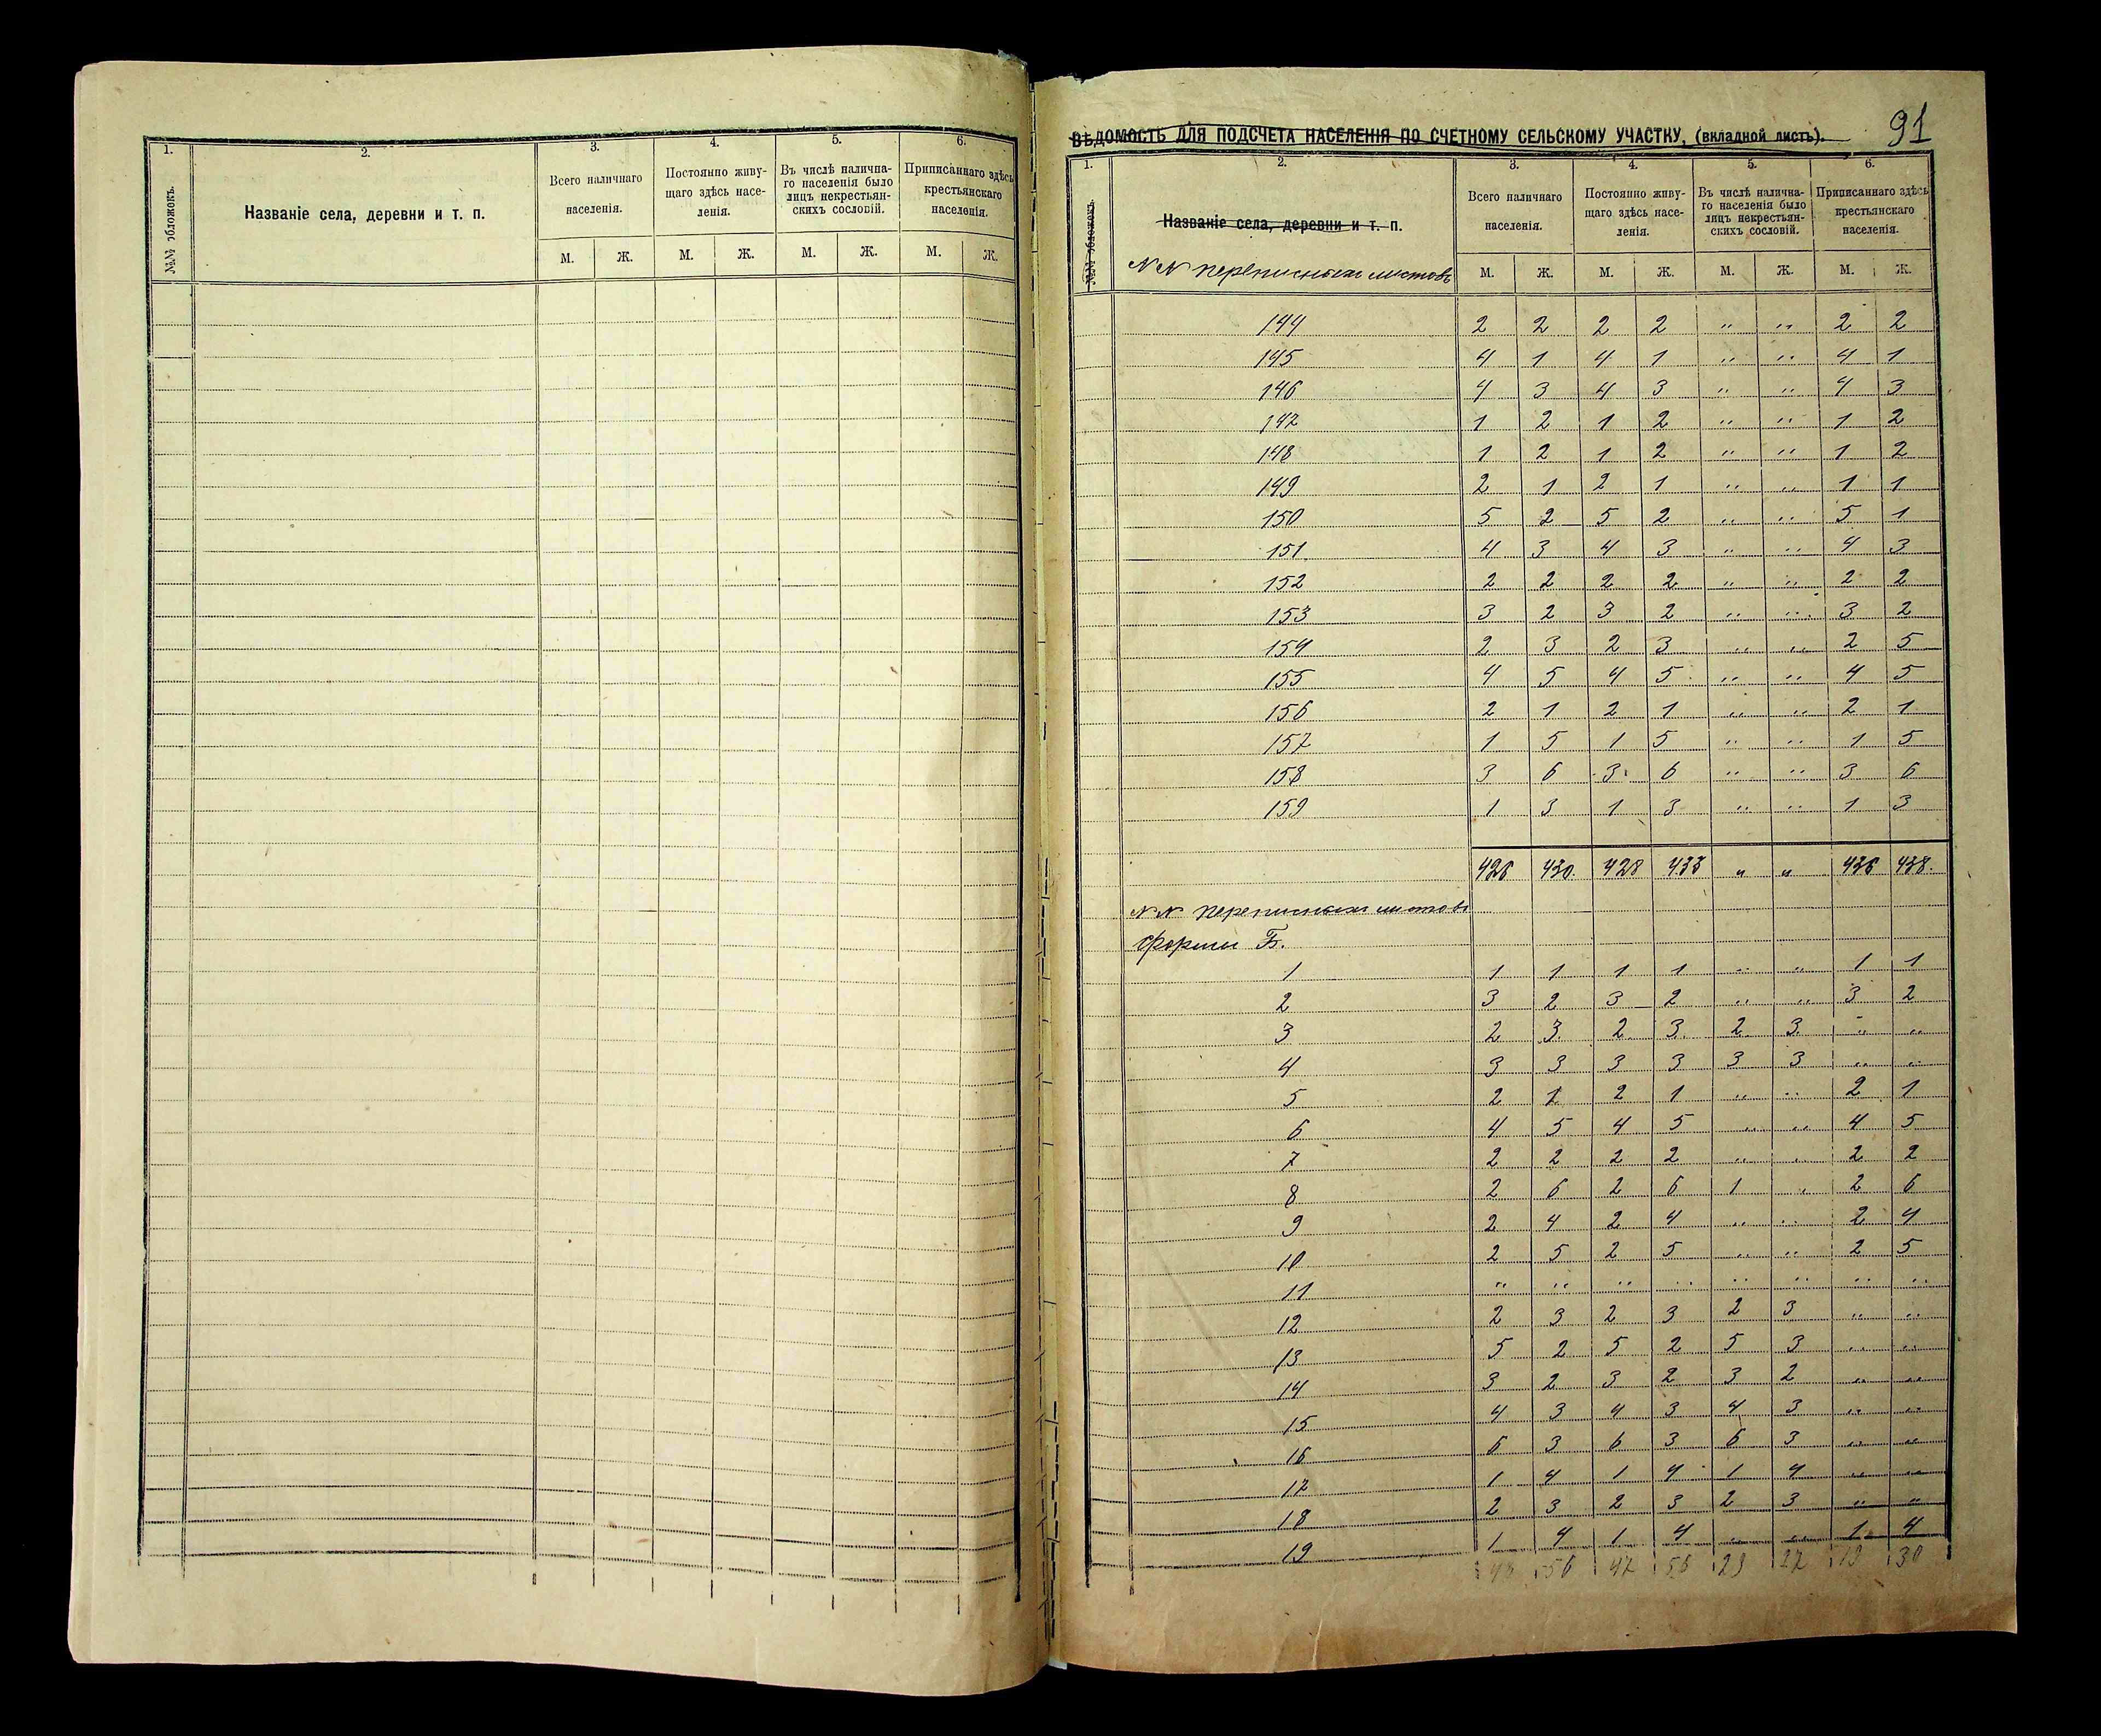 1. 2. 3. 4. 5. 6.
№№ обложекъ.
Названіе села, деревни и т. п.
Всего наличнаго населенія.
Постоянно живу-
щаго здѣсь насе-
ленія.
Въ числѣ налична-
го населенія было
лицъ некрестьян-
скихъ сословій.
Приписаннаго здѣсь
крестьянскаго
населенія.
М. Ж. М. Ж. М. Ж. М. Ж.
91
ВѢДОМОСТЬ ДЛЯ ПОДСЧЕТА НАСЕЛЕНІЯ ПО СЧЕТНОМУ СЕЛЬСКОМУ УЧАСТКУ, (вкладной листъ).
1. 2. 3. 4. 5. 6.
№№ обложекъ.
Названіе села, деревни и т. п.
N N переписныхъ листовъ
Всего наличнаго
населенія.
Постоянно живу-
щаго здѣсь насе-
ленія.
Въ числѣ налична-
го населенія было
лицъ некрестьян-
скихъ сословій.
Приписаннаго здѣсь
крестьянскаго
населенія.
М. Ж. М. Ж. М. Ж. М. Ж.
144 2 2 2 2 " " 2 2
145 4 1 4 1 " " 4 1
146 4 3 4 3 " " 4 3
147 1 2 1 2 " " 1 2
148 1 2 1 2 " " 1 2
149 2 1 2 1 " " 1 1
150 5 2 5 2 " " 5 1
151 4 3 4 3 " " 4 3
152 2 2 2 2 " " 2 2
153 3 2 3 2 " " 3 2
154 2 3 2 3 " " 2 5
155 4 5 4 5 " " 4 5
156 2 1 2 1 " " 2 1
157 1 5 1 5 " " 1 5
158 3 6 3 6 " " 3 6
159 1 3 1 3 " " 1 3
426 430. 428 433 " " 436 438.
N N переписныхъ листовъ
формы Б.
1 1 1 1 1 " " 1 1
2 3 2 3 2 " " 3 2
3 2 3 2 3 2 3 " "
4 3 3 3 3 3 3 " "
5 2 1 2 1 " " 2 1
6 4 5 4 5 " " 4 5
7 2 2 2 2 " " 2 2
8 2 6 2 6 1 " 2 6
9 2 4 2 4 " " 2 4
10 2 5 2 5 " " 2 5
11 " " " " " " " "
12 2 3 2 3 2 3 " "
13 5 2 5 2 5 3 " "
14 3 2 3 2 3 2 " "
15 4 3 4 3 4 3 " "
16 6 3 6 3 6 3 " "
17 1 4 1 4 1 4 " "
18 2 3 2 3 2 3 " "
19 1 4 1 4 " " 1 4
56 47 56 29 27 19 30